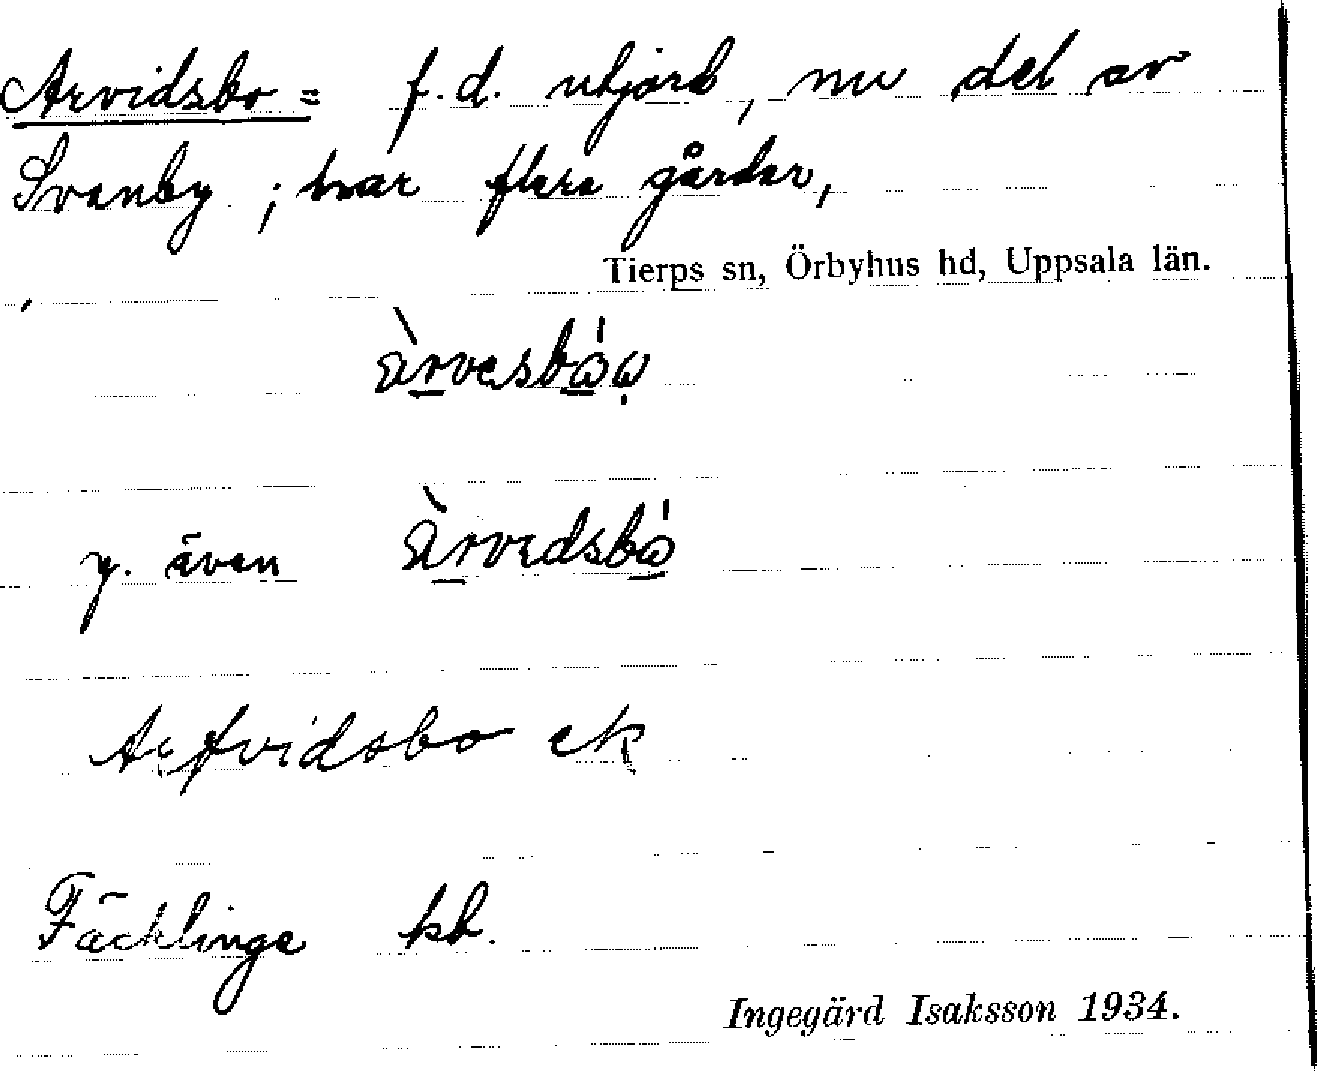 Arvidsbo = f.d. utjord, nu del av
Svanby ; har flera gårdar,
Tierps sn, Örbyhus hd, Uppsala län.
y. även
Arfvidsbo ek
Fäcklinge kb.
Ingegärd Isaksson 1934.